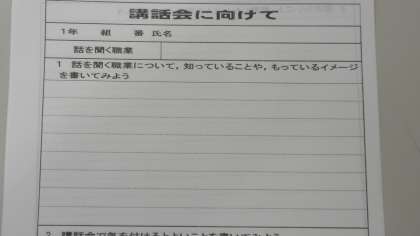 講話会に向けて
1年　組　番 氏名
話を聞く職業
1 話を聞く職業について，知っていることや，もっているイメージ
を書いてみよう
2 講話会で気を付けるとよいことを書いてみよう